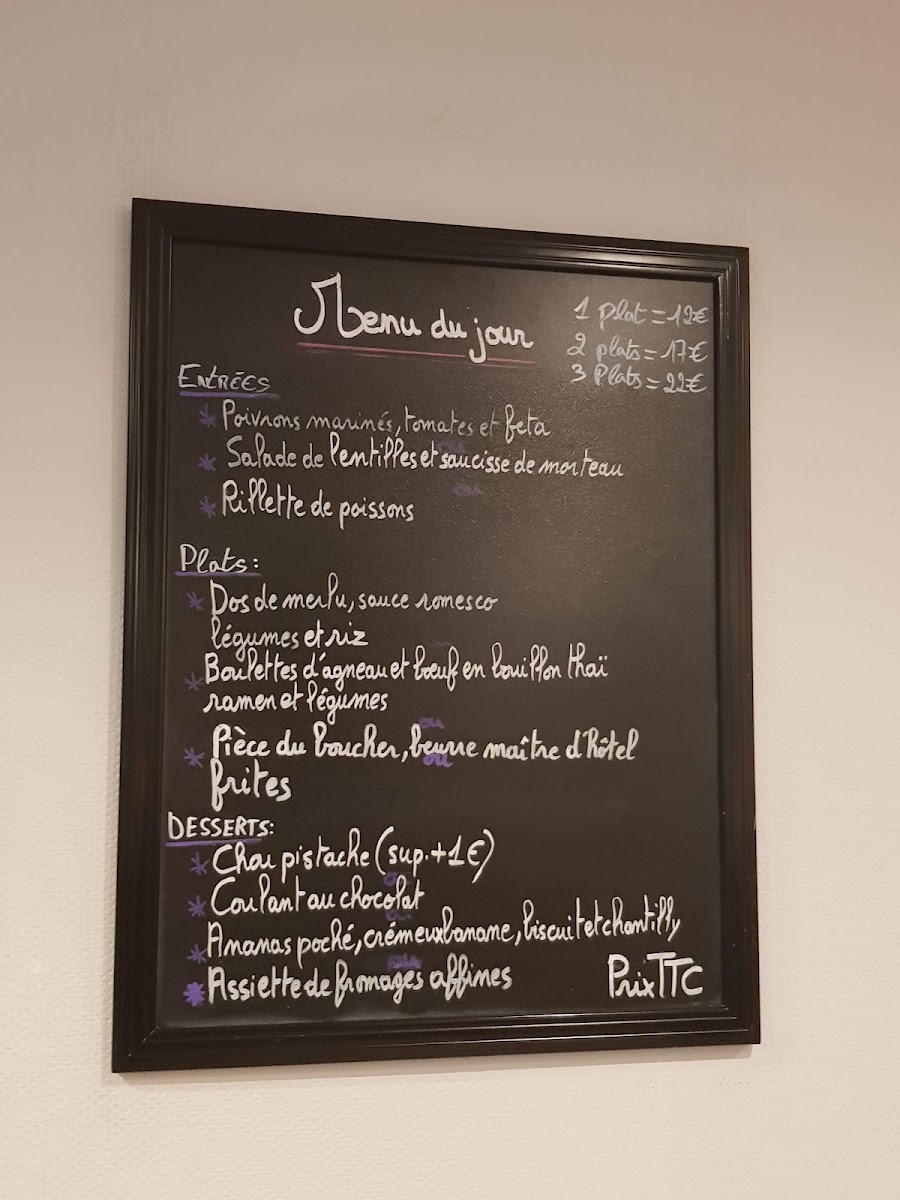 Menu du jour
1 plat = 12€
2 plats = 17€
3 Plats = 22€
ENTRÉES
* Poivrons marinés, tomates et feta
ou
* Salade de lentilles et saucisse de morteau
ou
* Rillette de poissons
Plats:
* Dos de merlu, sauce romesco
légumes et riz
* Boulettes d'agneau et bœuf en bouillon thaï
ramen et légumes
ou
* Pièce du boucher, beurre maître d'hôtel
ou
frites
DESSERTS:
* Chou pistache (sup.+1€)
ou
* Coulant au chocolat
ou
* Ananas poché, crémeux banane, biscuit et chantilly
ou
* Assiette de fromages affines
Prix TTC